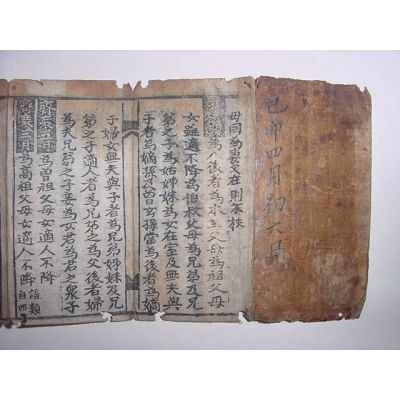 己卯四月初六日
母同爲妻父在則不杖
爲人後者爲本生父母爲祖父母
女雖適不降爲伯叔父母爲兄弟及兄
弟之子爲姑姊妹爲女在室及無夫與
子者爲嫡孫及曾玄孫當爲後者爲嫡
子婦女無夫與子者爲兄弟姊妹及兄
弟之子適人者爲兄弟之爲父後者婦
爲夫兄弟之子妾爲女君爲君之衆子
齊衰五月爲曾祖父母女適人不降
齊衰三月爲高祖父母女適人不降語類自四